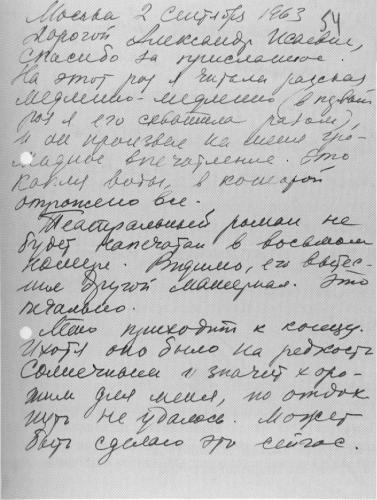 Москва 2 сентября 1963
54
Дорогой Александр Исаевич,
спасибо за присланное.
На этот раз я читала рассказ
медленно-медленно (в первый
раз я его схватила разом),
и он произвел на меня гро-
мадное впечатление. Это
капля воды, в которой
отражено все.
Театральный роман не
будет напечатан в восьмом
номере. Видимо, его вытес-
нил другой материал. Это
печально.
Лето приходит к концу.
И хотя оно было на редкость
солнечным и значит хоро-
шим для меня, но отдох-
нуть не удалось. Может
быть сделаю это сейчас.